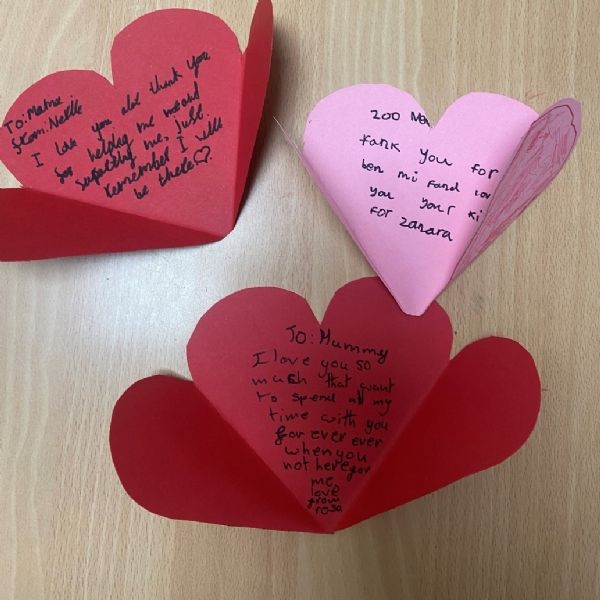 To: Mama
From: Nelle
I love you and thank you
for helping me and
supporting me. Just
remember I will
be there♡
zoo
fank you for
ben mi fand
you your
for zahara
To: Mummy
I love you so
much that want
to spend all my
time with you
for ever ever
when you
not here for
me
love
from
rosa